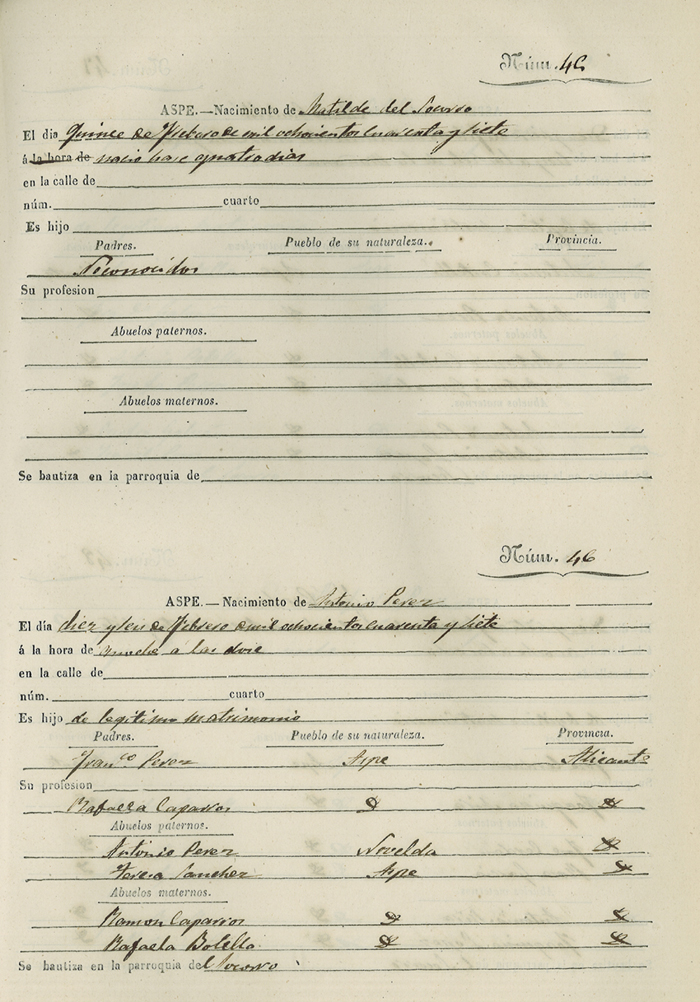 Núm. 45
ASPE.—Nacimiento de Matilde del Socorro
El dia quince de Febrero de mil ochocientos cuarenta y siete
á la hora de nacio hace quatro dias
en la calle de
núm. cuarto
Es hijo
Padres. Pueblo de su naturaleza. Provincia.
Su profesion
Abuelos paternos.
Abuelos maternos.
Se bautiza en la parroquia de
Núm. 46
ASPE.—Nacimiento de Antonio Perez
El día diez y seis de Febrero de mil ochocientos cuarenta y siete
á la hora de anoche a las doce
en la calle de
núm. cuarto
Es hijo de legitimo matrimonio
Padres. Pueblo de su naturaleza. Provincia.
Fran.co Perez Aspe Alicante
Su profesion
Rafaela Caparros
Abuelos paternos.
Antonio Perez Novelda
Teresa Sanchez Aspe
Abuelos maternos.
Ramon Caparros
Rafaela Botella
Se bautiza en la parroquia del Socorro